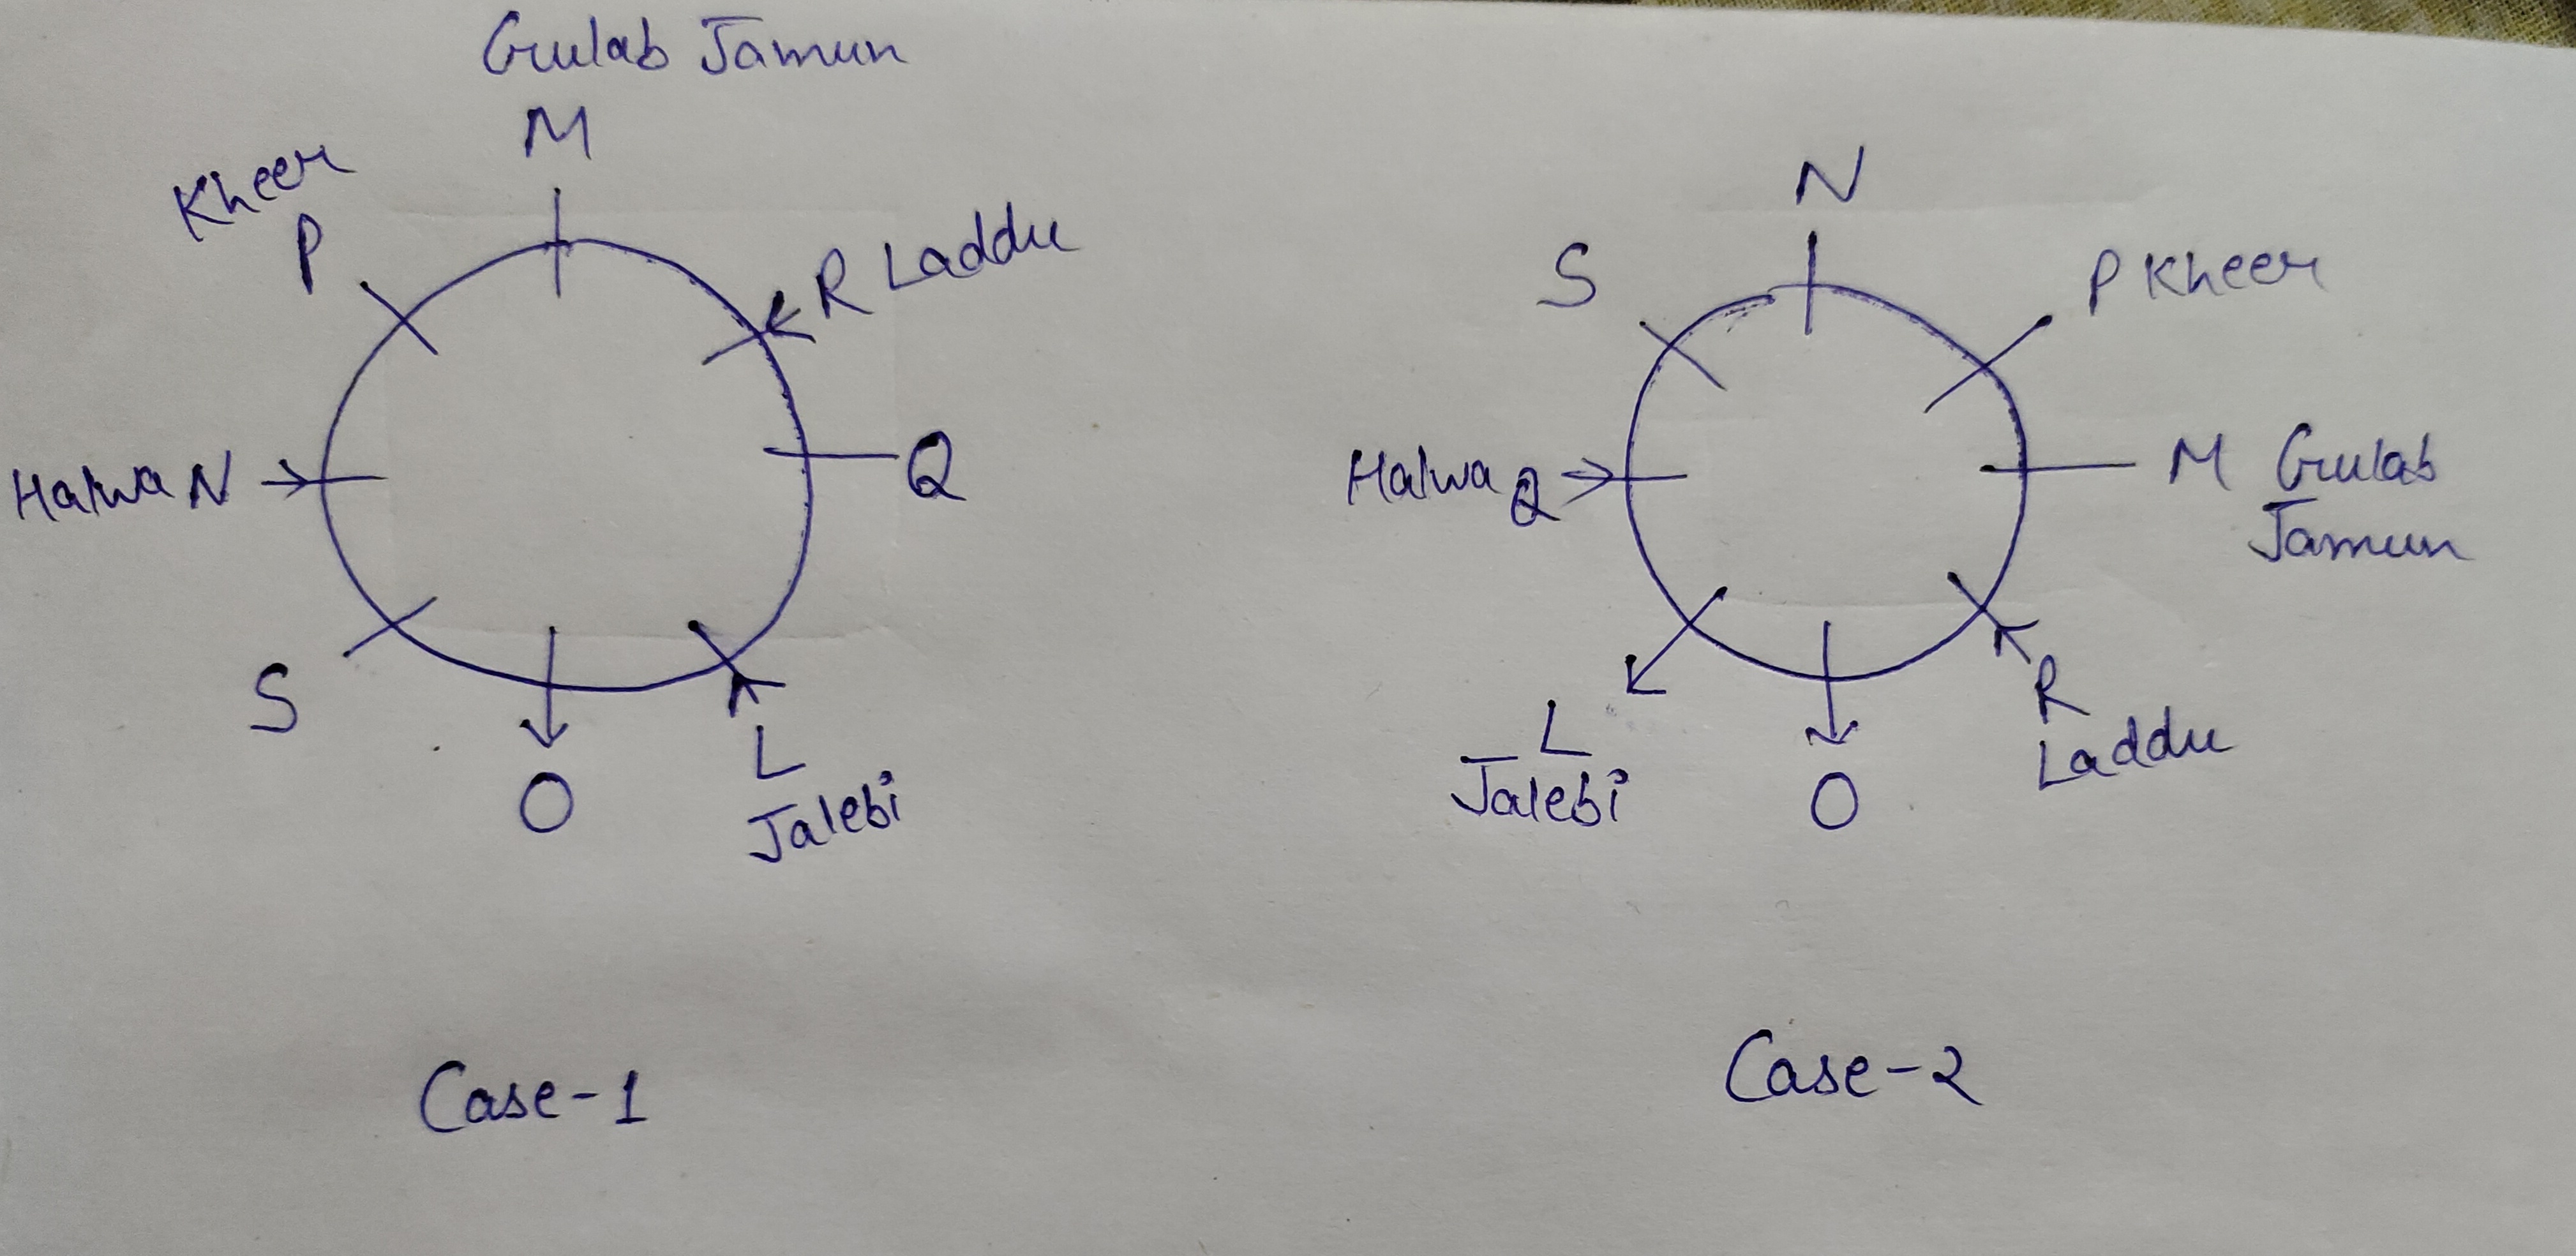 Gulab Jamun
M
Kheer
P
R Laddu
Halwa N
Q
S
O
L
Jalebi
Case-1
N
S
P Kheer
Halwa Q
M Gulab
Jamun
L
Jalebi
O
R
Laddu
Case-2